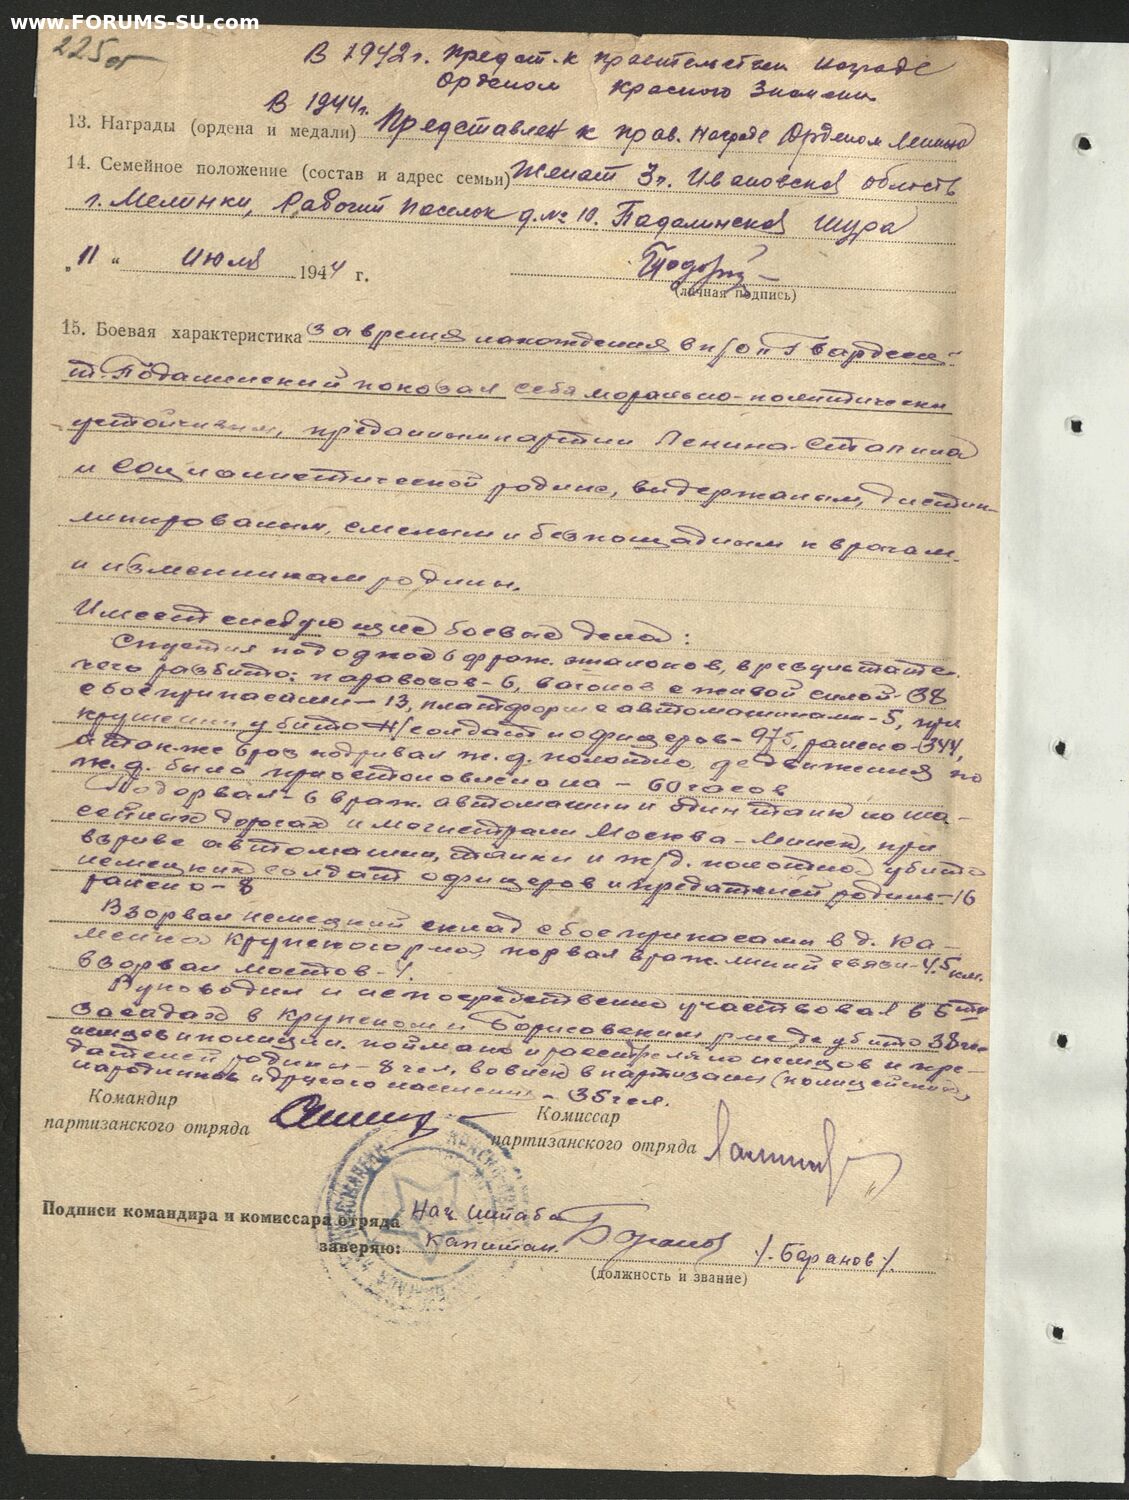 www.FORUMS-SU.com
225об
В 1942 г. Предст. к правительствен награде
Орденом Красного Знамени
В 1944 г.
13. Награды (ордена и медали) Представлен к прав. награде Орденом Ленина
14. Семейное положение (состав и адрес семьи) Женат 3 г. Ивановской область
г. Меленки, Рабочий поселок д. № 10. Падалинская Шура
„ 11 “ Июля 1944 г.
(личная подпись)
15. Боевая характеристика За время нахождения в п/о
т. Подалинский показал себя морально-политически
устойчивым, преданным партии Ленина-Сталина
и социалистической родине, выдержаным, дисцип-
линированым, смелым и безпощадным к врагам
и изменникам родины.
Имеет следующие боевые дела:
Спустил под откос 6 враж. эшалонов, в результате
чего разбито: паравозов - 6, вагонов с живой силой - 38
с боеприпасами - 13, платформ с автомашинами - 5, при
крушении убито н/солдат и офицеров - 975, ранено - 344,
а также 6 раз подрывал ж.д. полотно, где движения по
ж.д. было приостоновлено на - 60 часов
Подорвал - 6 враж. автомашин и один танк на ша-
сейных дорогах и магистрали Москва - Минск, при
взрыве автомашин, танки и ж/д. полотно убито
немецких солдат офицеров и предателей родины - 16
ранено - 8
Взорвал немецкий склад с боеприпасами в д. Ка-
менка Крупского р-на, порвал враж. линий связи - 4.5 км.
взорвал мостов - 4.
Руководил и непосредственно участвовал в 6ти
засадах в Крупском и Борисовским р-не где убито 38
немцев и полицаи. поймано и расстреляно немцов и пре-
дателей родины - 8 чел, вовлек в партизаны (полицейских,
народников и другого население - 35 чел.
Командир
партизанского отряда
Комиссар
партизанского отряда
Подписи командира и комиссара отряда
заверяю:
Нач. Штаба
Капитан. Баранов /. Баранов /.
(должность и звание)